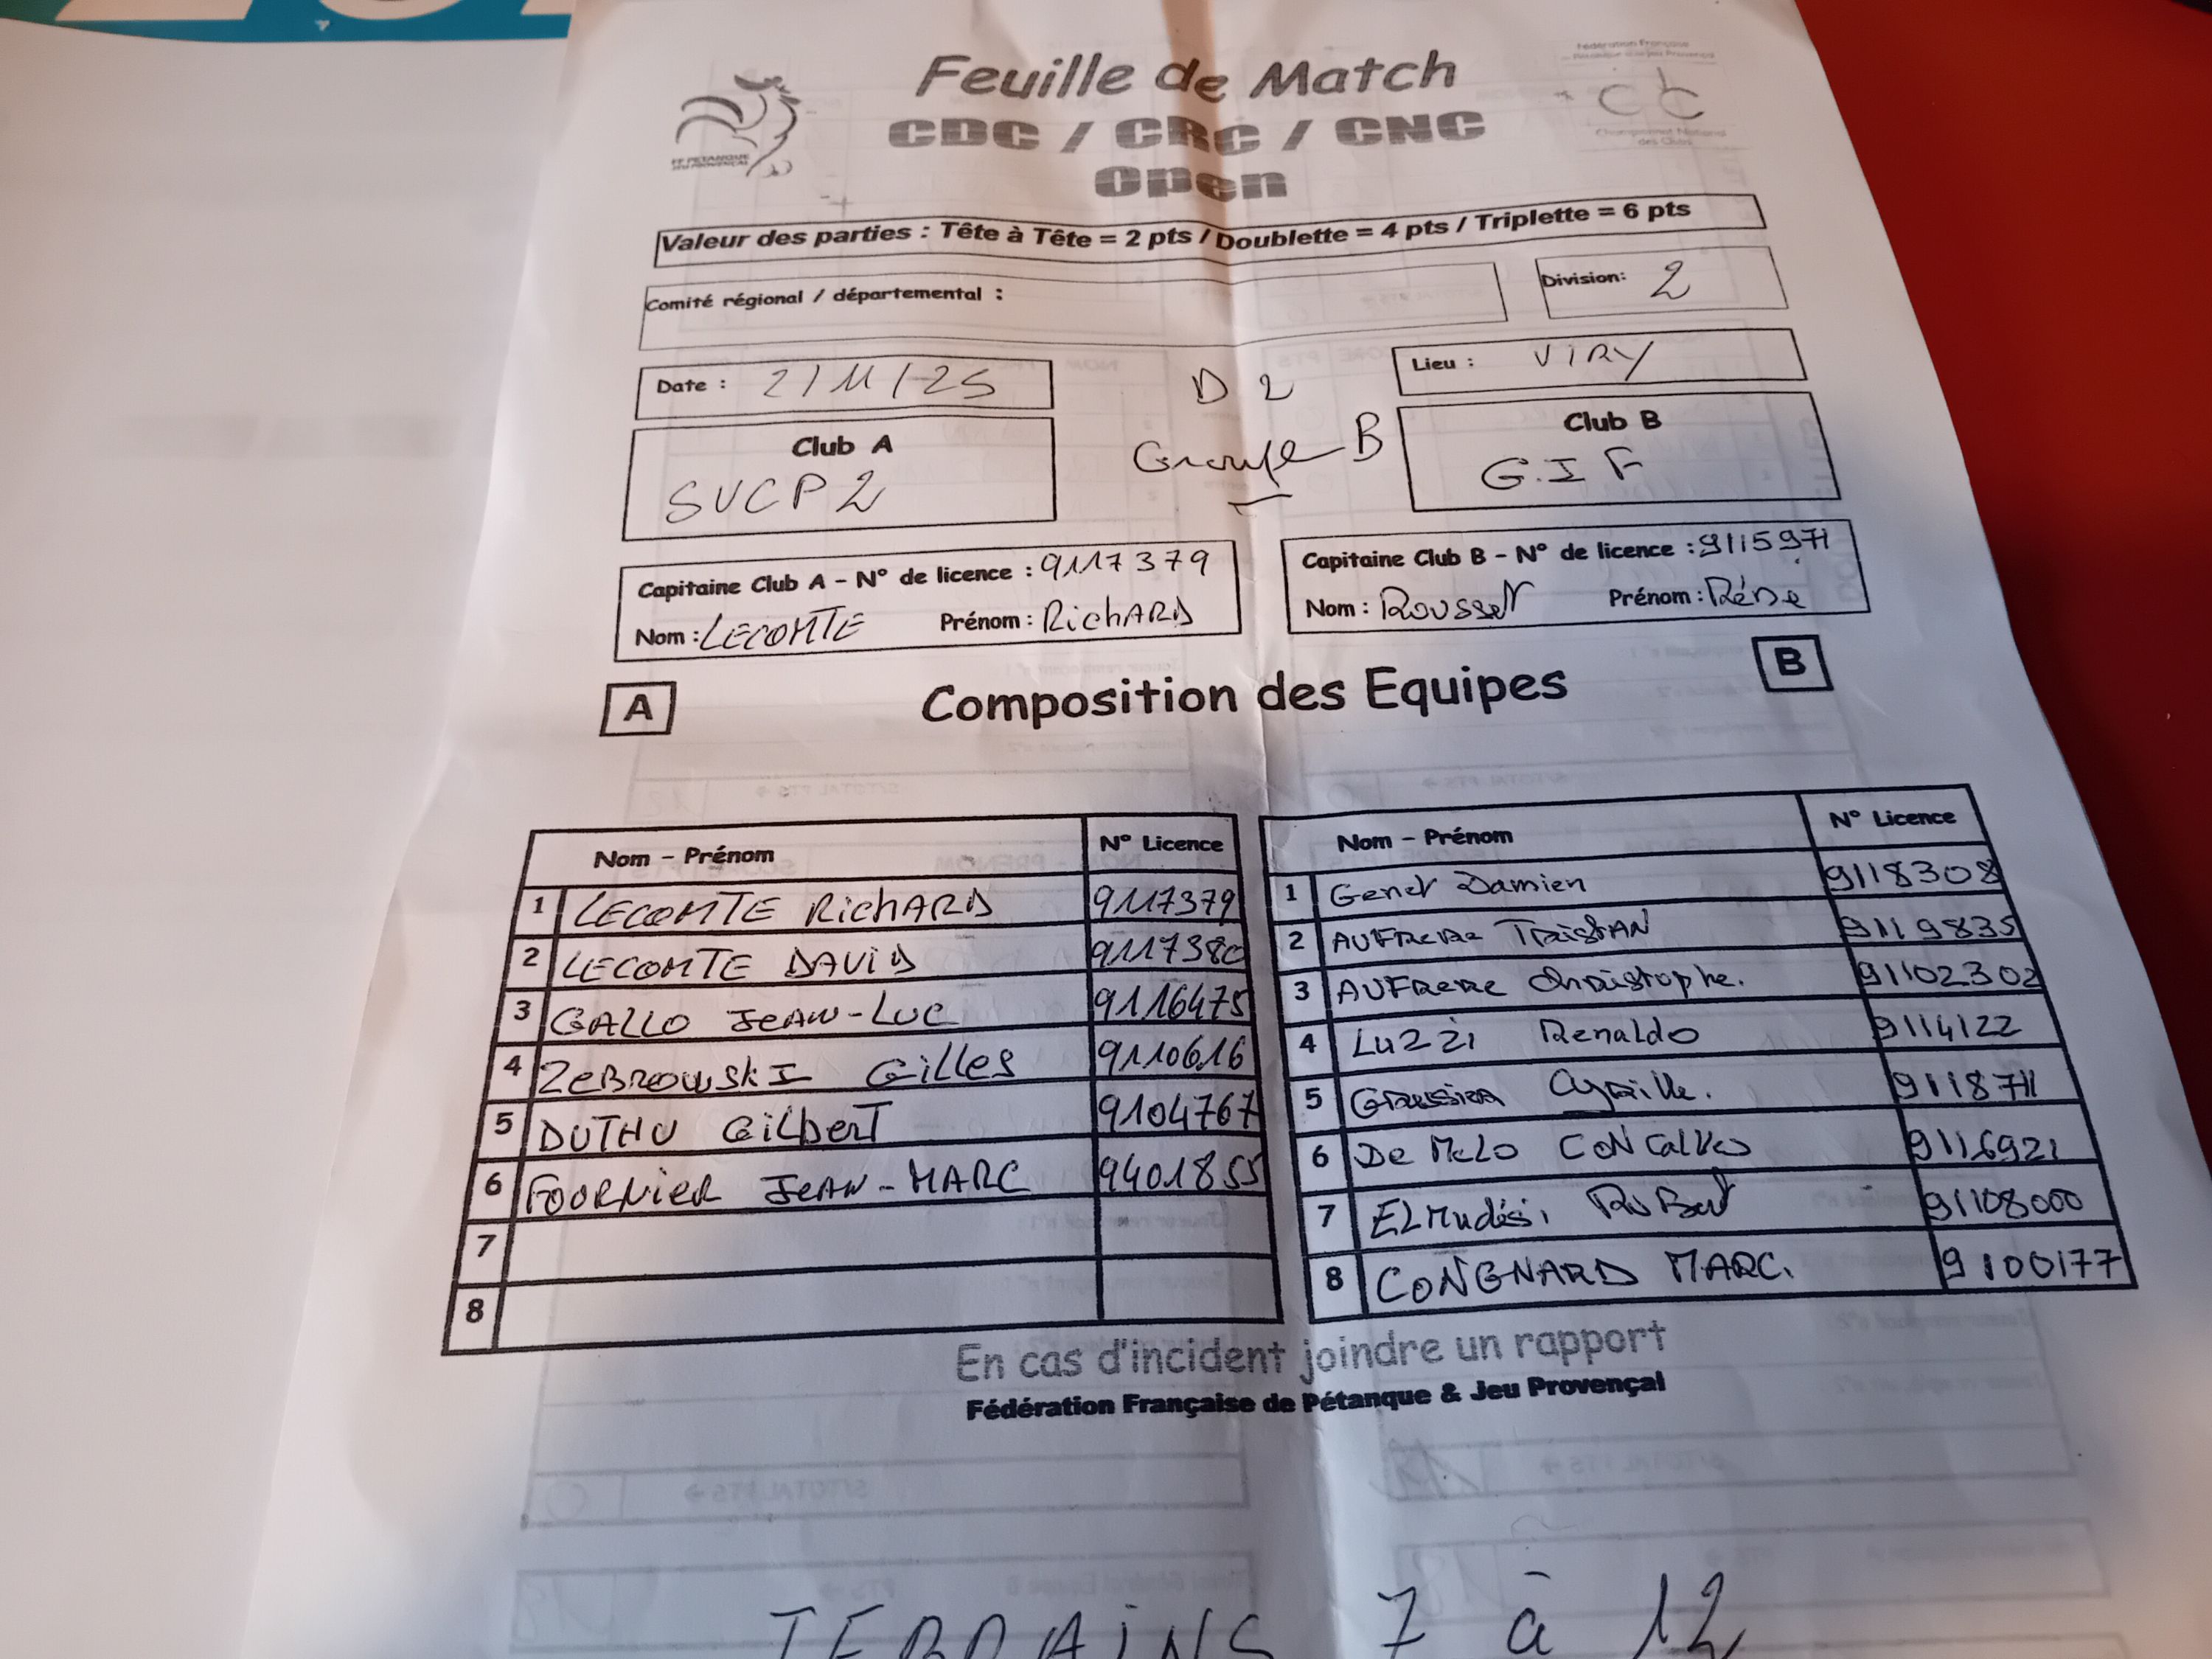 Feuille de Match
CDC / CRC / CNC
Open
FF PETANQUE
JEU PROVENÇAL
Championnat National
des Clubs
Valeur des parties : Tête à Tête = 2 pts / Doublette = 4 pts / Triplette = 6 pts
Comité régional / départemental :
Division: 2
Date : 2/11/25
D2
Groupe B
Lieu : VIRY
Club A
SUCP 2
Club B
G.I F
Capitaine Club A - N° de licence : 9117379
Nom : LECOMTE Prénom : RichARD
Capitaine Club B - N° de licence : 9115971
Nom : Rousset Prénom :
A
Composition des Equipes
B
Nom - Prénom N° Licence
1 LECOMTE RichARD 9117379
2 LECOMTE DAViD 9117380
3 GALLO JeAN-LUC 9116475
4 ZeBROWSKI Gilles 9110616
5 DUTHU GilberT 9104767
6 FOORNieR JeAN-MARC 9401855
7
8
Nom - Prénom N° Licence
1 Genet Damien 9118308
2 AUFRERE TRiSTAN 9119835
3 AUFRERE Christophe. 91102302
4 Luzzi Renaldo 9114122
5 Cyrille. 9118711
6 De Melo 9116921
7 91108000
8 CONGNARD MARC. 9100177
En cas d'incident joindre un rapport
Fédération Française de Pétanque & Jeu Provençal
TERRAiNS 7 à 12